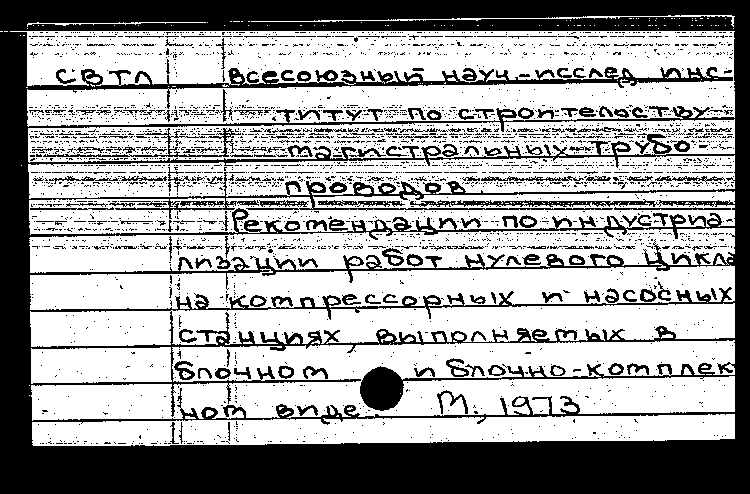 СВТЛ Всесоюзный науч.-исслед. инс-
титут по строительству
магистральных трубо-
проводов.
Рекомендации по индустриа-
лизации работ нулевого цикла
на компрессорных и насосных
станциях, выполняемых в
блочном и блочно-комплек-
ном виде. М., 1973